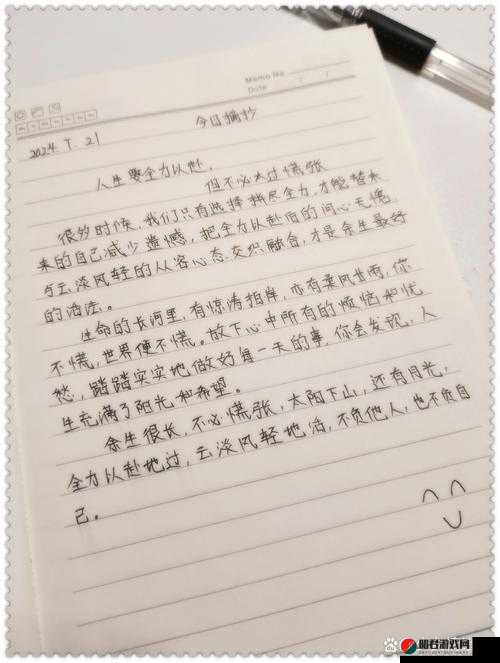 Memo No.
Date / /
2024. 7. 21
今日摘抄
人生要全力以赴,
但不必太过慌张
很多时候,我们只有选择拼尽全力,才能替未
来的自己减少遗憾,把全力以赴后的问心无愧
与云淡风轻的从容心态,交织融合,才是余生最好
的活法。
生命的长河里,有惊涛拍岸,亦有柔风甘雨,你
不慌,世界便不慌。放下心中所有的烦恼和忧
愁,踏踏实实地做好每一天的事,你会发现,人
生充满了阳光和希望。
余生很长,不必慌张,太阳下山,还有月光,
全力以赴地过,云淡风轻地活,不负他人,也不负自
己。
Bai
昭谷游戏网